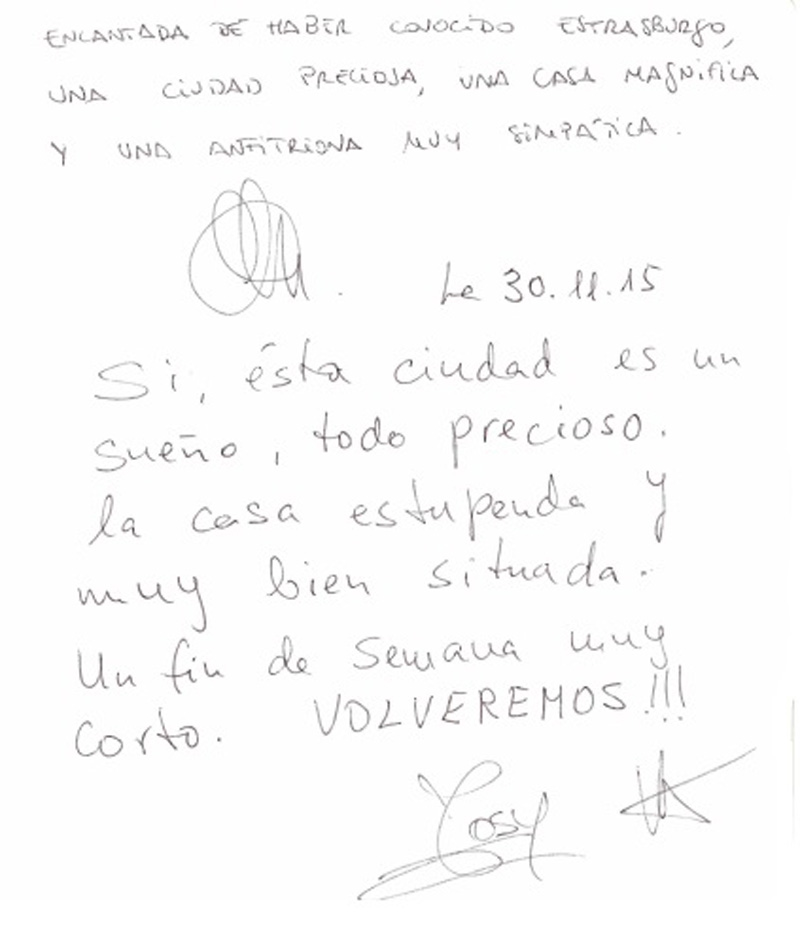 ENCANTADA DE HABER CONOCIDO ESTRASBURGO,
UNA CIUDAD PRECIOSA, UNA CASA MAGNIFICA
Y UNA ANFITRIONA MUY SIMPÁTICA.
Le 30.11.15
Si, ésta ciudad es un
sueño, todo precioso.
la casa estupenda y
muy bien situada.
Un fin de semana muy
corto. VOLVEREMOS!!!